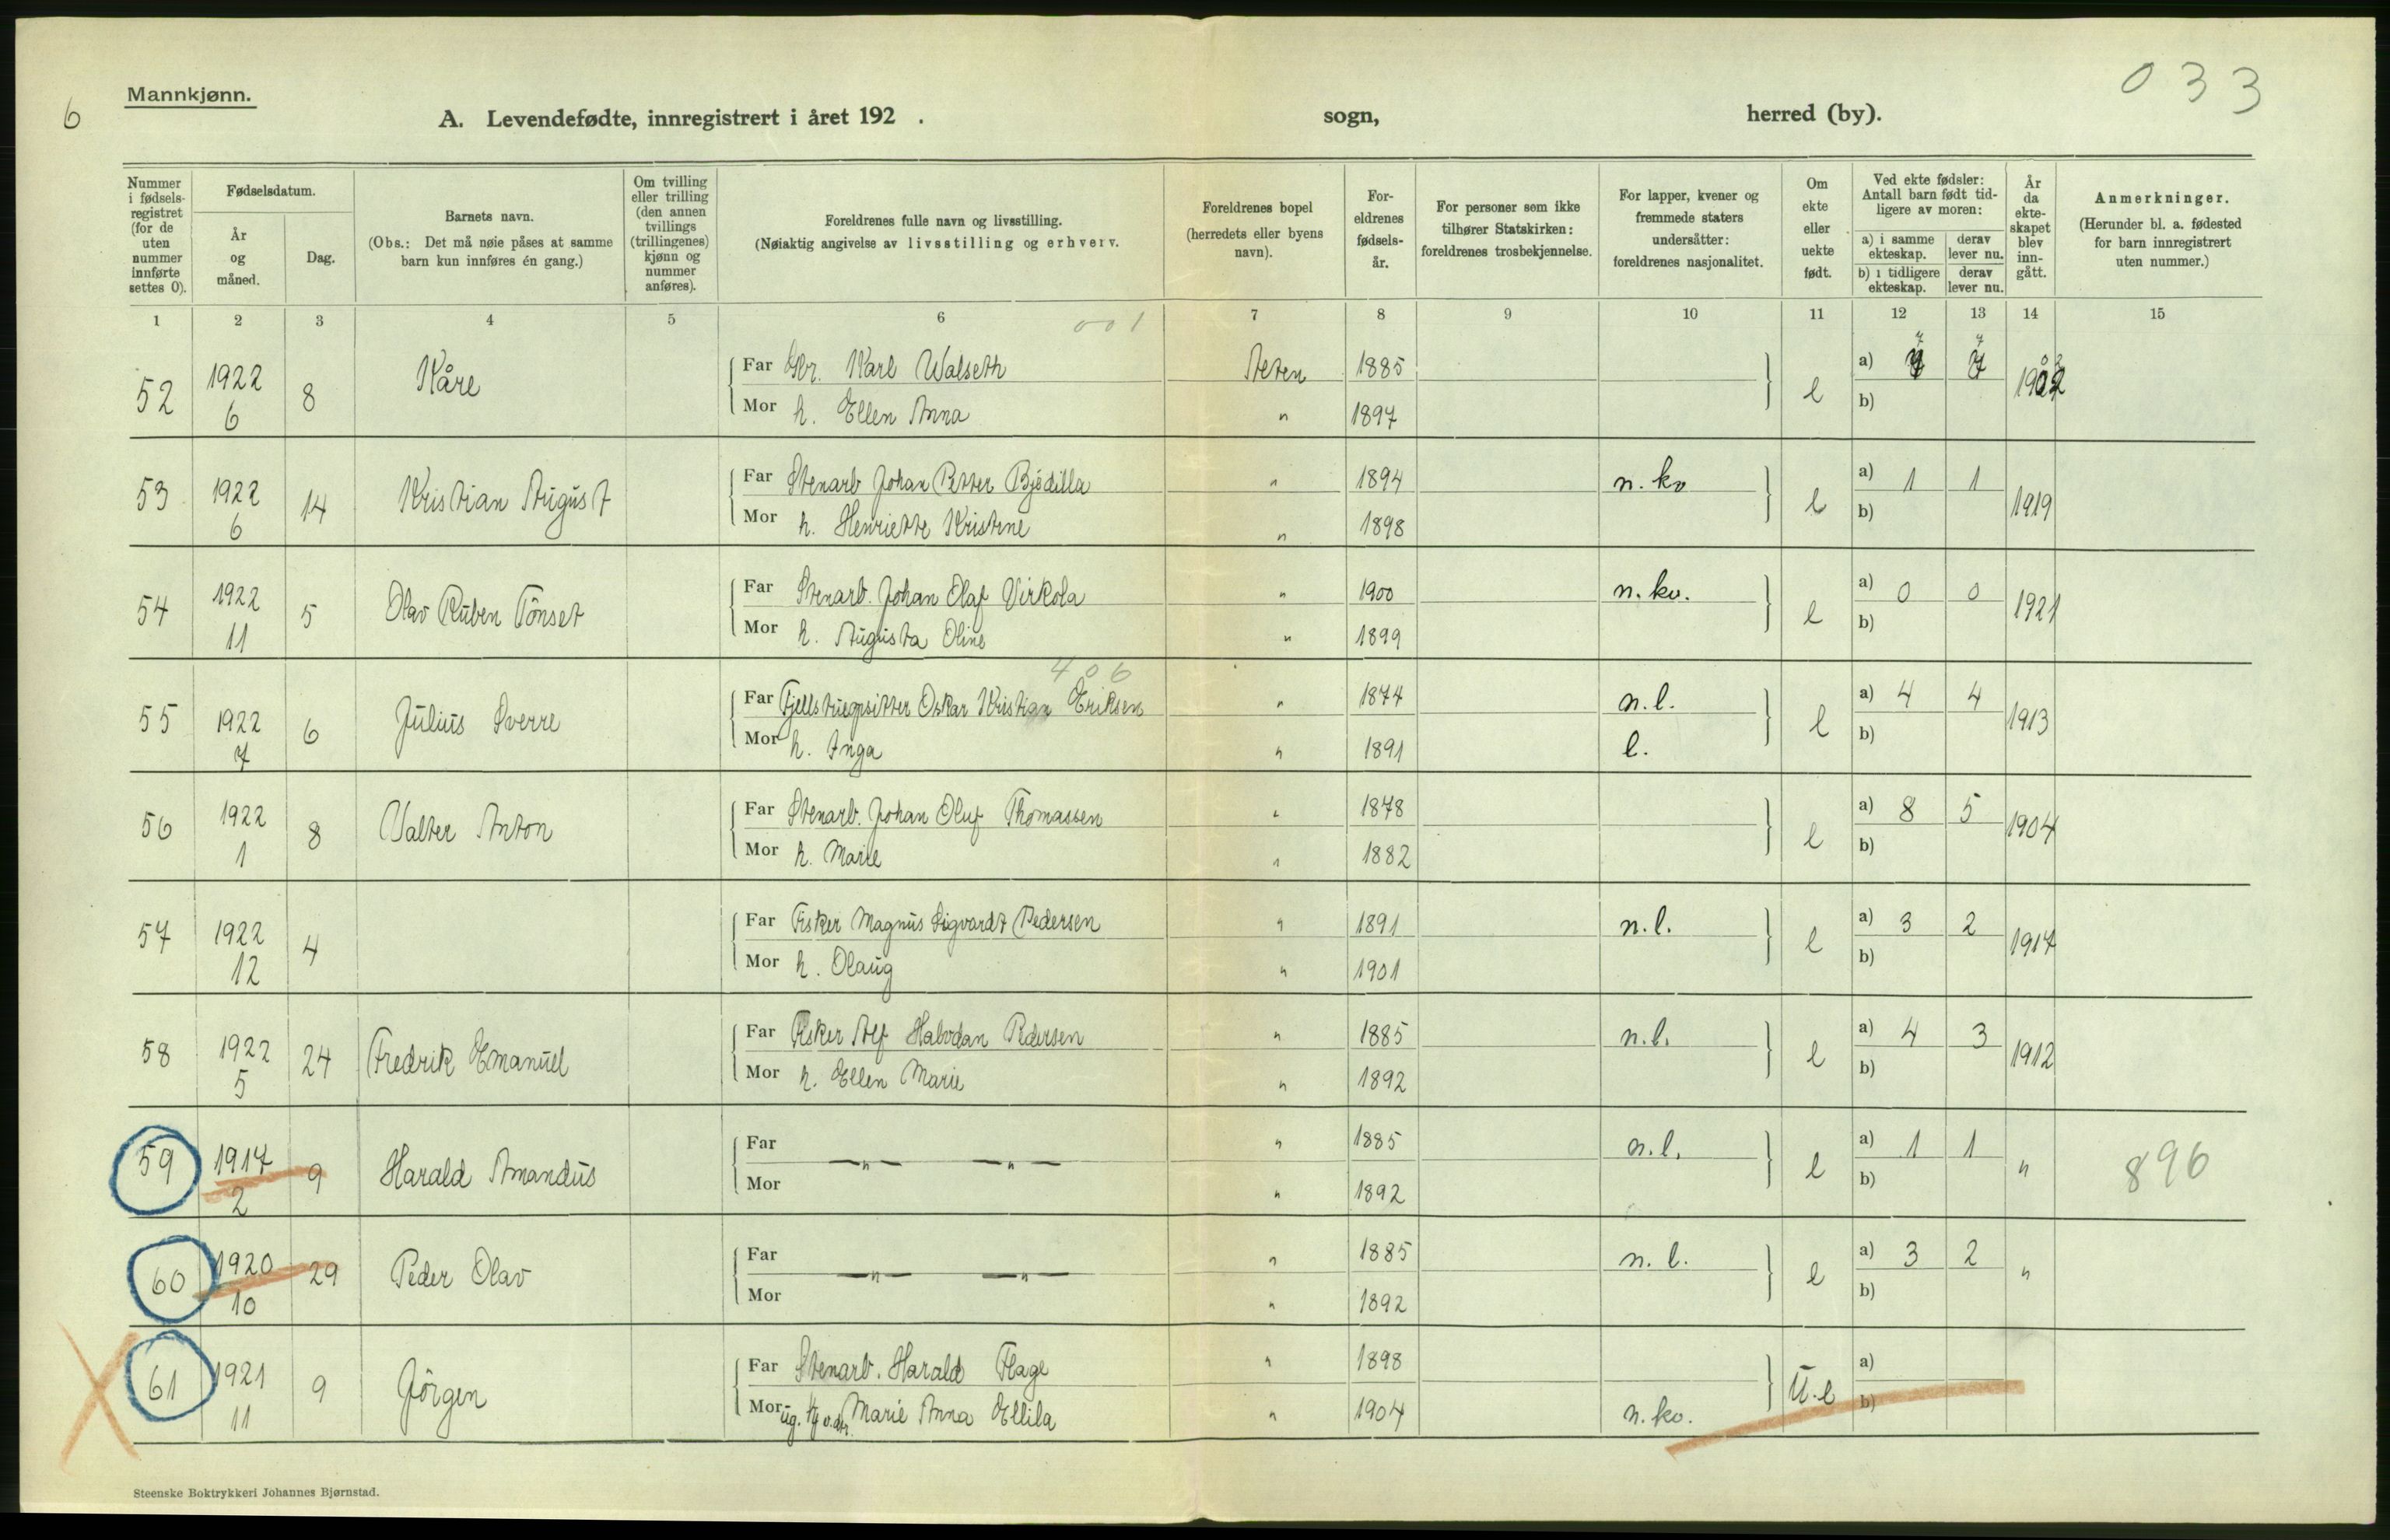 Mannkjønn.
033
6
A. Levendefødte, innregistrert i året 192 . sogn, herred (by).
Nummer i fødsels-registret (for de uten nummer innførte settes 0).
Fødselsdatum.
År og måned.
Dag.
Barnets navn.
(Obs.: Det må nøie påses at samme barn kun innføres én gang.)
Om tvilling eller trilling (den annen tvillings (trillingenes) kjønn og nummer anføres).
Foreldrenes fulle navn og livsstilling.
(Nøiaktig angivelse av livsstilling og erhverv.
Foreldrenes bopel (herredets eller byens navn).
For-eldrenes fødsels-år.
For personer som ikke tilhører Statskirken: foreldrenes trosbekjennelse.
For lapper, kvener og fremmede staters undersåtter: foreldrenes nasjonalitet.
Om ekte eller uekte født.
Ved ekte fødsler: Antall barn født tid-ligere av moren:
a) i samme ekteskap.
derav lever nu.
b) i tidligere ekteskap.
derav lever nu.
År da ekte-skapet blev inn-gått.
Anmerkninger.
(Herunder bl. a. fødested for barn innregistrert uten nummer.)
1 2 3 4 5 6 7 8 9 10 11 12 13 14 15
001
52 1922 6 8 Kåre Far Gbr. Karl Walseth 1885 e a) 7 7
Mor h. Ellen Anna " 1897 b)
53 1922 6 14 Kristian August Far Stenarb Johan Petter Bjödilla " 1894 n. kv e a) 1 1 1919
Mor h. Henriette Kristine " 1898 b)
54 1922 11 5 Olav Ruben Tönset Far Stenarb. Johan Olaf Virkola " 1900 n. kv. e a) 0 0 1921
Mor h. Augusta Oline " 1899 b)
406
55 1922 7 6 Julius Sverre Far Oskar Kristian Eriksen " 1874 n. l. e a) 4 4 1913
Mor h. Inga " 1891 l. b)
56 1922 1 8 Valter Anton Far Stenarb. Johan Oluf Thomassen " 1878 e a) 8 5 1904
Mor h. Marie " 1882 b)
57 1922 12 4 Far Fisker Magnus Sigvardt Pedersen " 1891 n. l. e a) 3 2 1917
Mor h. Olaug " 1901 b)
58 1922 5 24 Fredrik Emanuel Far Fisker Alf Halvdan Pedersen " 1885 n. l. e a) 4 3 1912
Mor h. Ellen Marie " 1892 b)
59 1917 2 9 Harald Amandus Far — " — — " — " 1885 n. l. e a) 1 1 " 896
Mor " 1892 b)
60 1920 10 29 Peder Olav Far — " — — " — " 1885 n. l. e a) 3 2 "
Mor " 1892 b)
61 1921 11 9 Jörgen Far Stenarb. Harald Flage " 1898 U. e a)
Mor ug. Marie Anna Ellila " 1904 n. kv. b)
Steenske Boktrykkeri Johannes Bjørnstad.